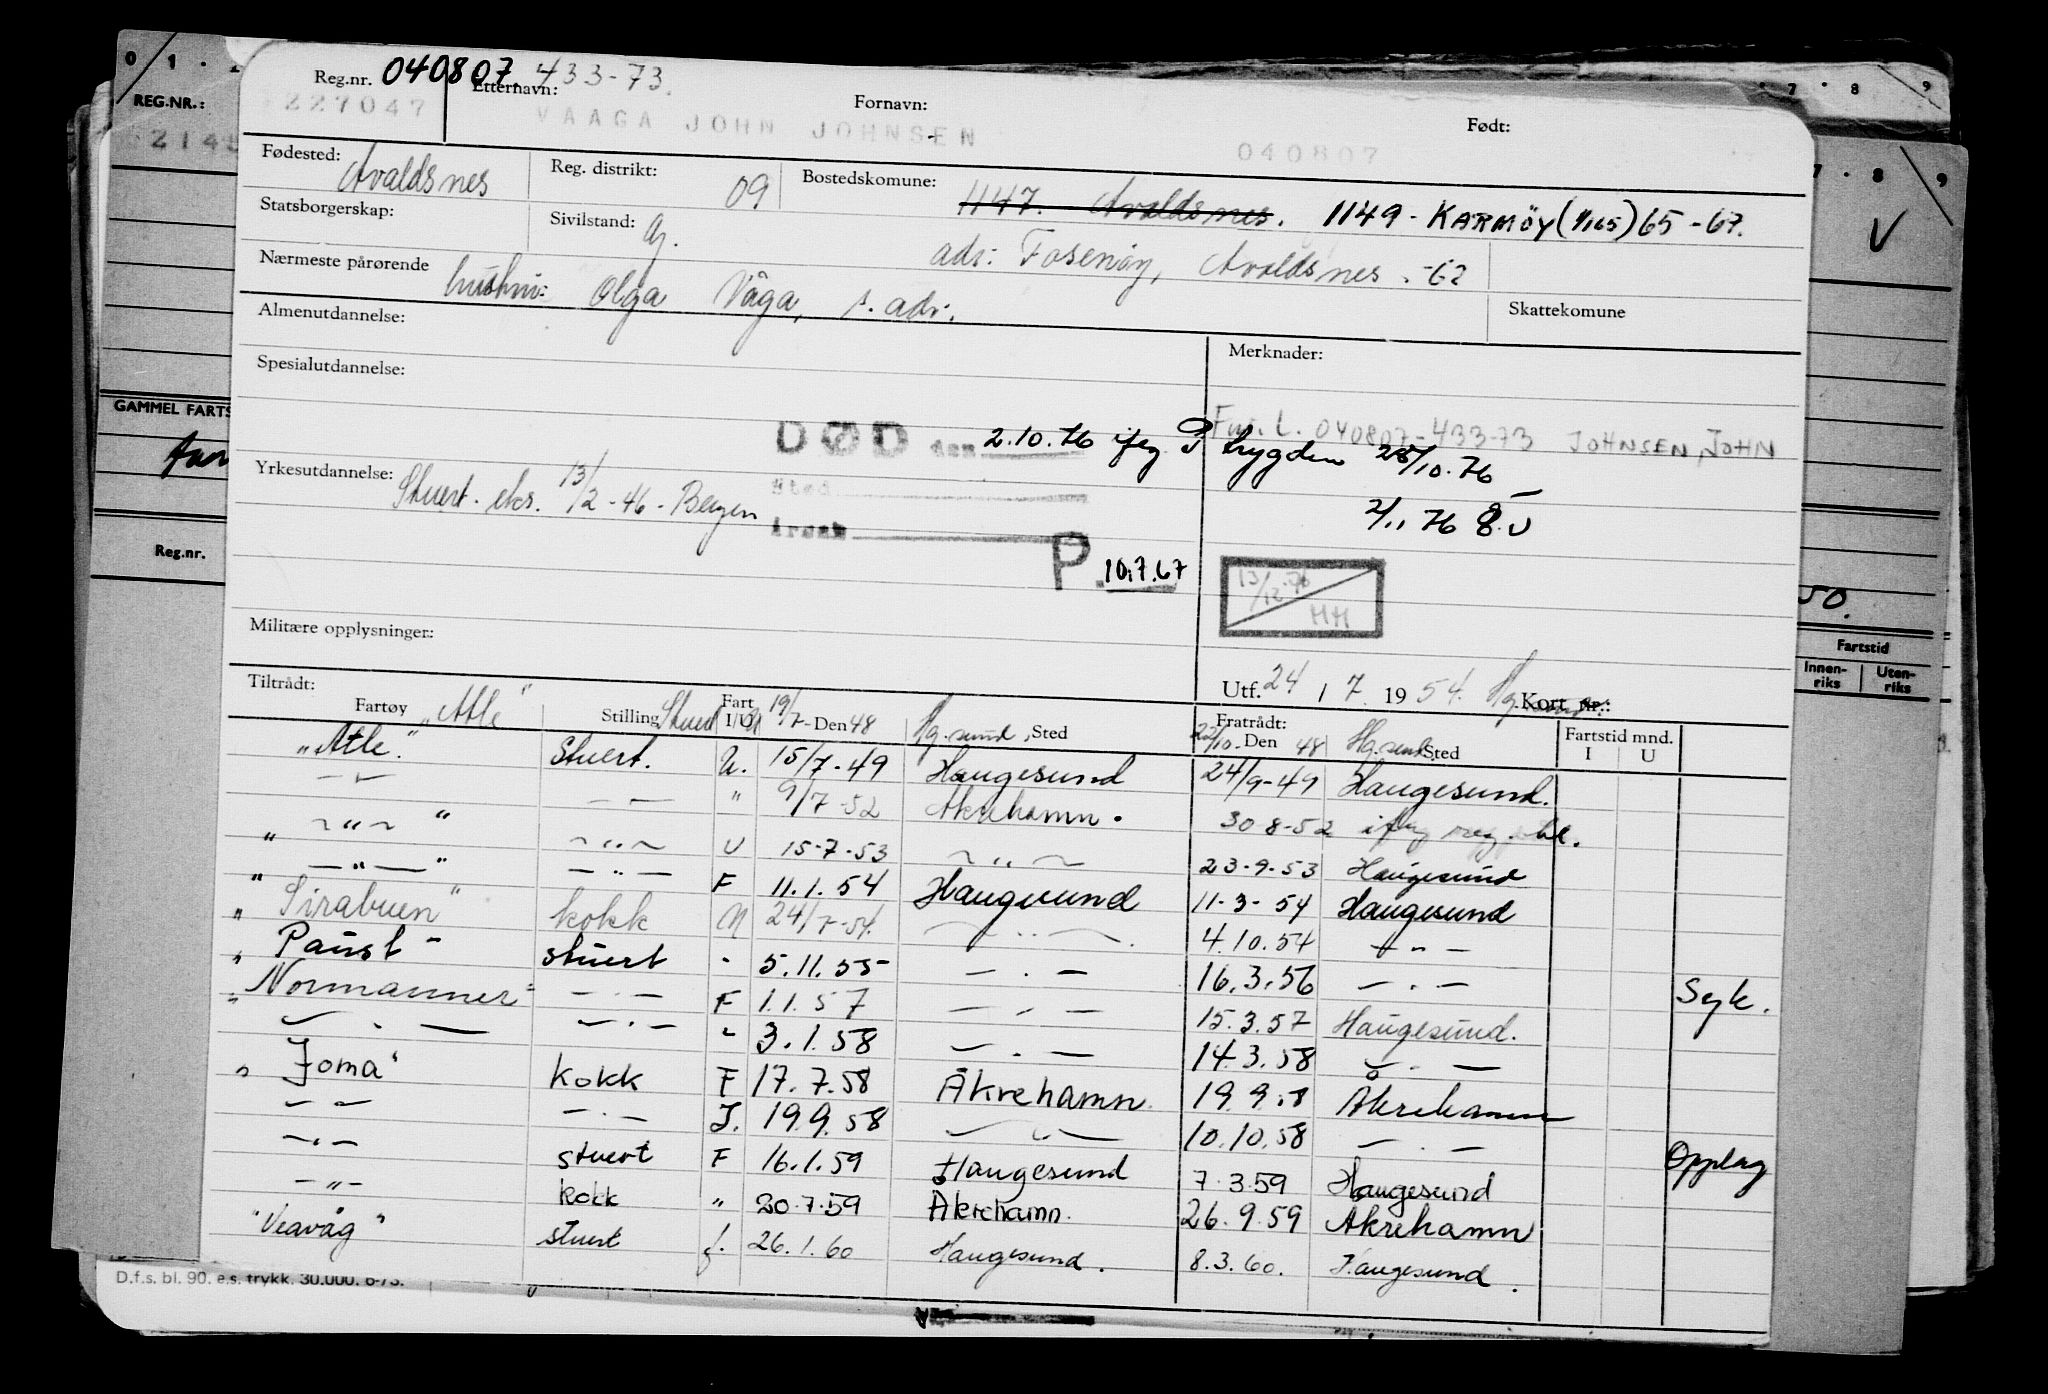 0 1 . 7 . 8 9
REG.NR.:
2145
Reg.nr. 040807. 433-73.
227047
Etternavn: Fornavn: Født:
VAAGA JOHN JOHNSEN 040807
Fødested: Avaldsnes Reg. distrikt: 09 Bostedskomune: 1147. Avaldsnes. 1149 - KARMÖY (1/1 65) 65 -67.
Statsborgerskap: Sivilstand: g. adr: Fosenöy, Avaldsnes. -62
7 . 8 9
V
Nærmeste pårørende hustru: Olga Våga, s. adr.
Skattekomune
Almenutdannelse:
Merknader:
Spesialutdannelse:
GAMMEL FARTS
DØD den 2.10.76 ifлg trygden 28/10.76
040807-433-73 JOHNSEN, JOHN
Yrkesutdannelse: Stuert. eks. 13/2-46 - Bergen
Sted
2/11 76
Årsak
Reg.nr.
P. 10.7.67
13/12.76 HH
50.
Militære opplysninger:
Fartstid
Innen-riks Uten-riks
Utf. 24 / 7 19 54. Hg.sund. Kort nr.:
Tiltrådt: Fratrådt: Fartstid mnd.
Fartøy Stilling Fart I/U Den Sted Den Sted I U
"Atle" Stuert U 19/7-48 Hg.sund 22/10. 48 Hg.sund
"Atle." Stuert. U. 15/7-49 Haugesund 24/9-49 Haugesund.
— " — — — " 9/7-52 Åkrehamn. 30-8-52
" ~ " ~ " ~ " ~ U 15-7-53 ~ " ~ 23-9-53 Haugesund
" — " — " — " — F 11.1.54 Haugesund 11-3-54 Haugesund
" Sirabuen " kokk N 24/7-54. — " — 4.10.54 — " —
" Paust - stuert - 5.11.55 — . — 16.3.56 — . — Syk.
" Normanner " — . — F 1.1.57 — . — 15.3.57 Haugesund.
— . — — . — " 3.1.58 — . — 14.3.58 — . —
" Joma " kokk F 17.7.58 Åkrehamn 19.9.8 Åkrehamn
— " — — . — I. 19.9.58 — " — 10.10.58 — . — Opplag
— . — stuert F 16.1.59 Haugesund 7.3.59 Haugesund
— " — kokk " 20.7.59 Åkrehamn. 26.9.59 Åkrehamn
"Veavåg" stuert f. 26.1.60 Haugesund. 8.3.60. Haugesund.
D.f.s. bl. 90. e.s. trykk. 30.000. 6-73.